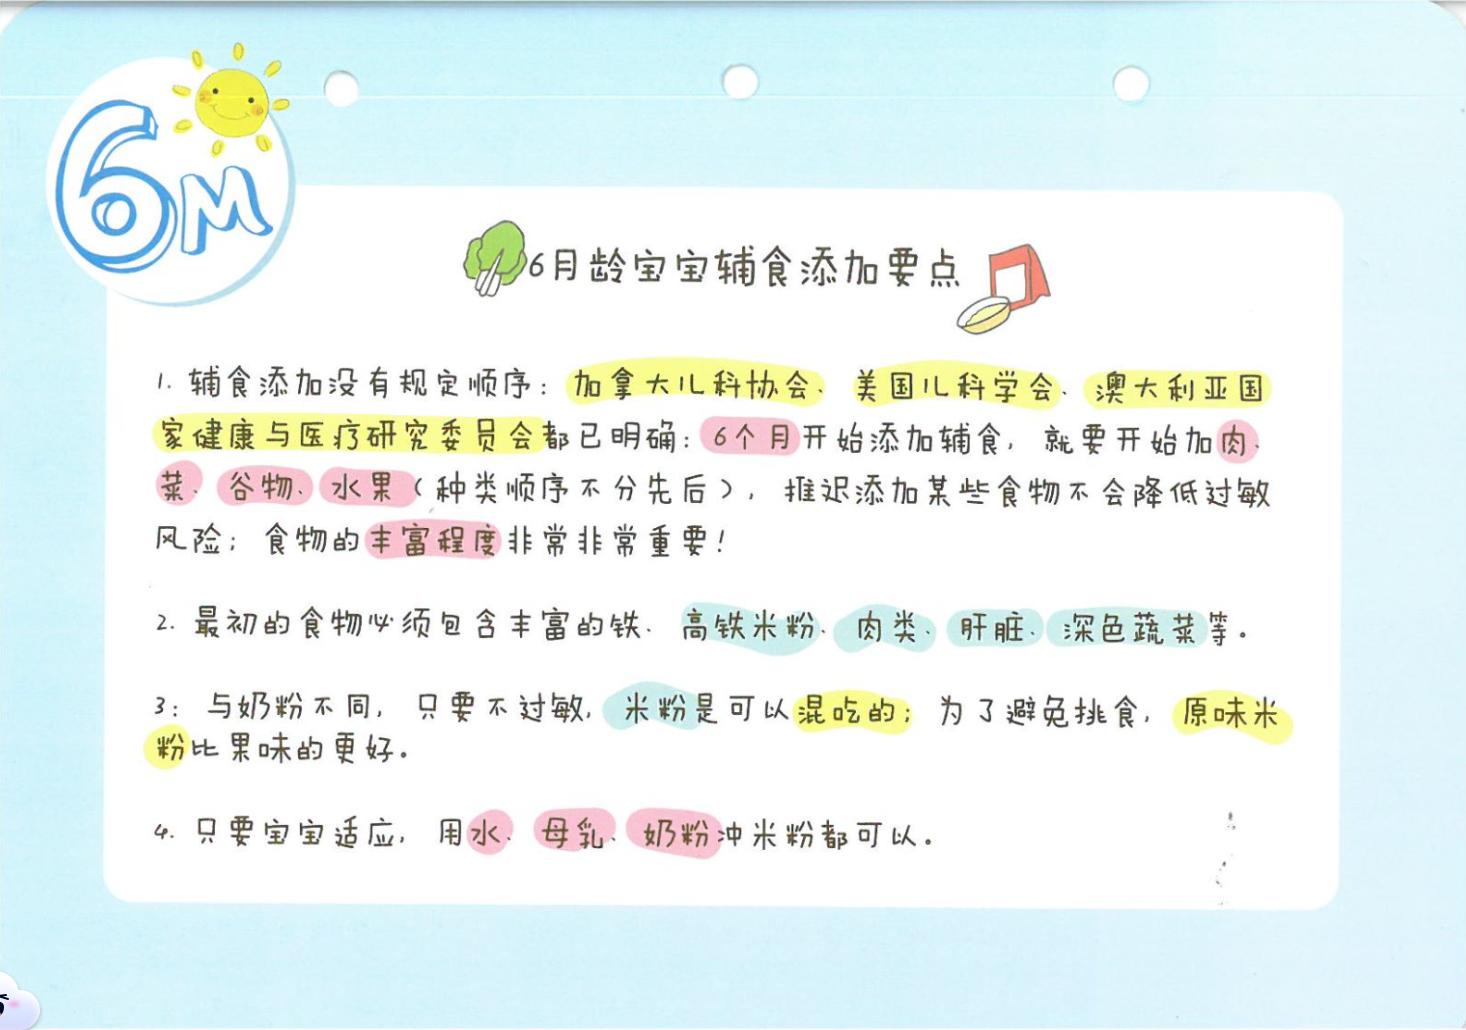 6M
6月龄宝宝辅食添加要点
1. 辅食添加没有规定顺序：加拿大儿科协会、美国儿科学会、澳大利亚国
家健康与医疗研究委员会都已明确：6个月开始添加辅食，就要开始加肉、
菜、谷物、水果（种类顺序不分先后），推迟添加某些食物不会降低过敏
风险；食物的丰富程度非常非常重要！
2. 最初的食物必须包含丰富的铁、高铁米粉、肉类、肝脏、深色蔬菜等。
3：与奶粉不同，只要不过敏，米粉是可以混吃的；为了避免挑食，原味米
粉比果味的更好。
4. 只要宝宝适应，用水、母乳、奶粉冲米粉都可以。